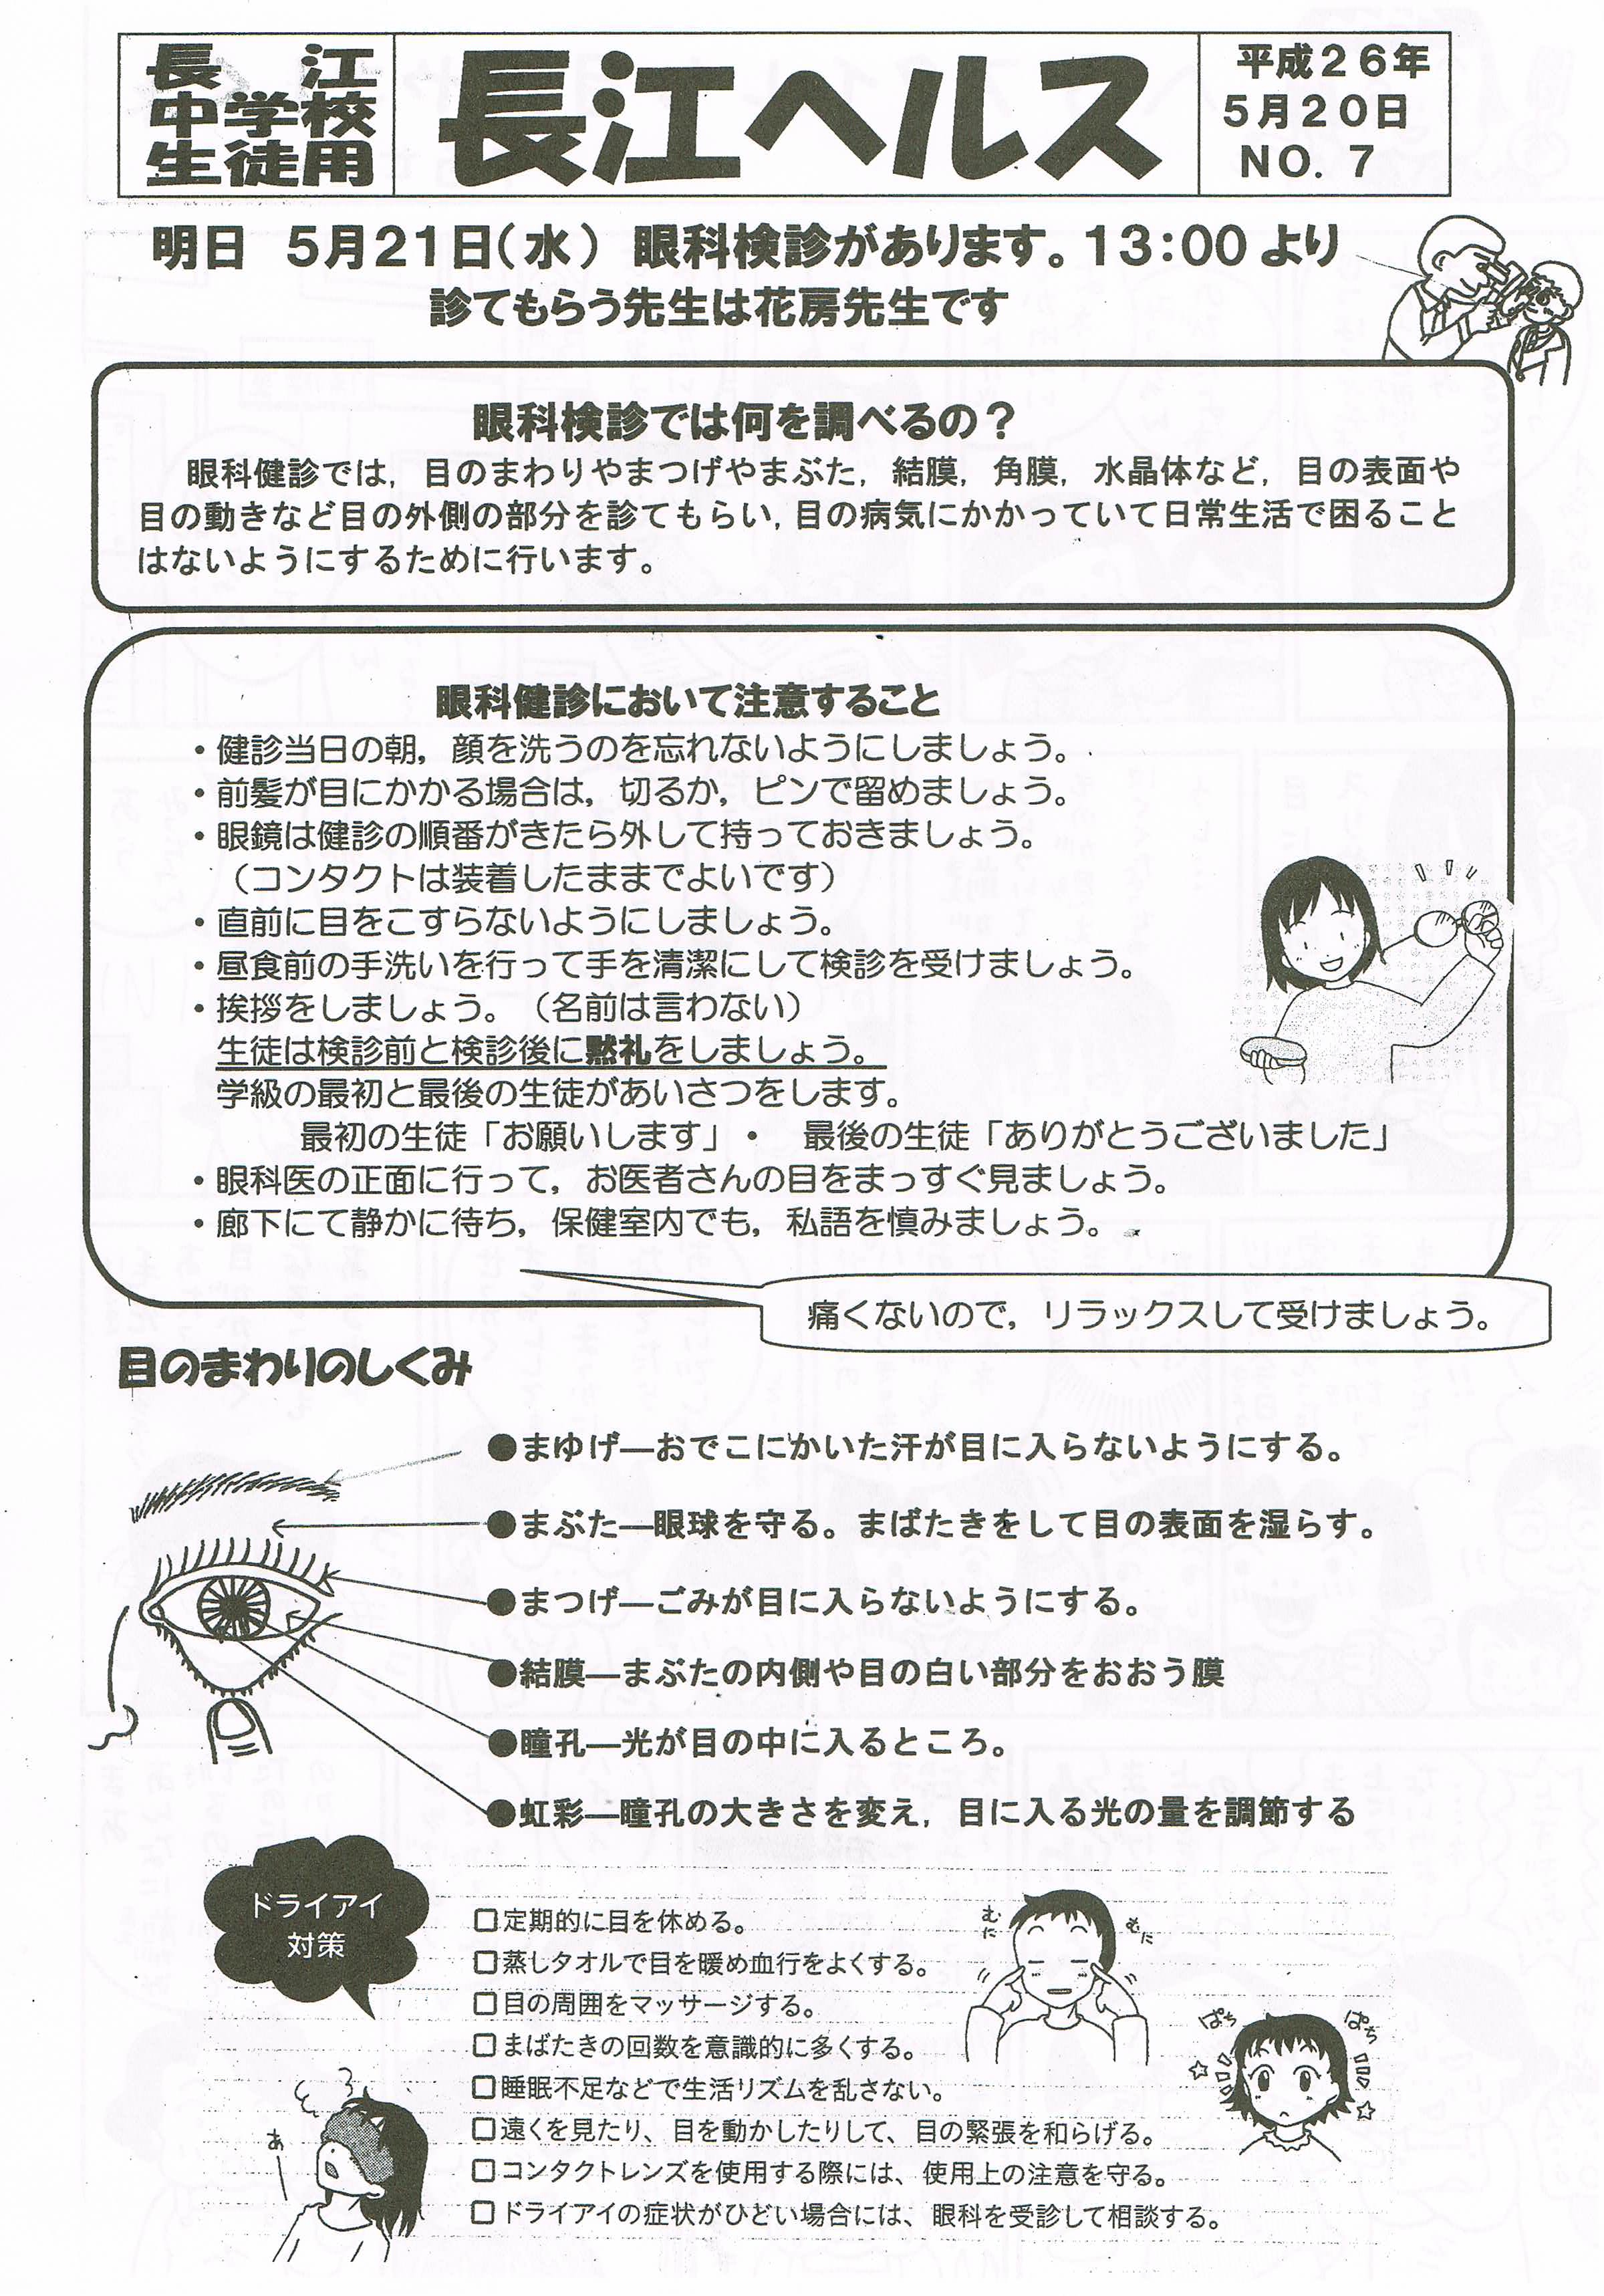 長江
中学校
生徒用
長江ヘルス
平成２６年
５月２０日
ＮＯ．７
明日　５月２１日（水）　眼科検診があります。１３：００より
診てもらう先生は花房先生です
眼科検診では何を調べるの？
眼科健診では，目のまわりやまつげやまぶた，結膜，角膜，水晶体など，目の表面や
目の動きなど目の外側の部分を診てもらい，目の病気にかかっていて日常生活で困ること
はないようにするために行います。
眼科健診において注意すること
・健診当日の朝，顔を洗うのを忘れないようにしましょう。
・前髪が目にかかる場合は，切るか，ピンで留めましょう。
・眼鏡は健診の順番がきたら外して持っておきましょう。
（コンタクトは装着したままでよいです）
・直前に目をこすらないようにしましょう。
・昼食前の手洗いを行って手を清潔にして検診を受けましょう。
・挨拶をしましょう。（名前は言わない）
生徒は検診前と検診後に黙礼をしましょう。
学級の最初と最後の生徒があいさつをします。
最初の生徒「お願いします」・　最後の生徒「ありがとうございました」
・眼科医の正面に行って，お医者さんの目をまっすぐ見ましょう。
・廊下にて静かに待ち，保健室内でも，私語を慎みましょう。
痛くないので，リラックスして受けましょう。
目のまわりのしくみ
●まゆげ―おでこにかいた汗が目に入らないようにする。
●まぶた―眼球を守る。まばたきをして目の表面を湿らす。
●まつげ―ごみが目に入らないようにする。
●結膜―まぶたの内側や目の白い部分をおおう膜
●瞳孔―光が目の中に入るところ。
●虹彩―瞳孔の大きさを変え，目に入る光の量を調節する
ドライアイ
対策
□定期的に目を休める。
□蒸しタオルで目を暖め血行をよくする。
□目の周囲をマッサージする。
□まばたきの回数を意識的に多くする。
□睡眠不足などで生活リズムを乱さない。
□遠くを見たり、目を動かしたりして、目の緊張を和らげる。
□コンタクトレンズを使用する際には、使用上の注意を守る。
□ドライアイの症状がひどい場合には、眼科を受診して相談する。
むに
むに
ぱち
ぱち
あ～